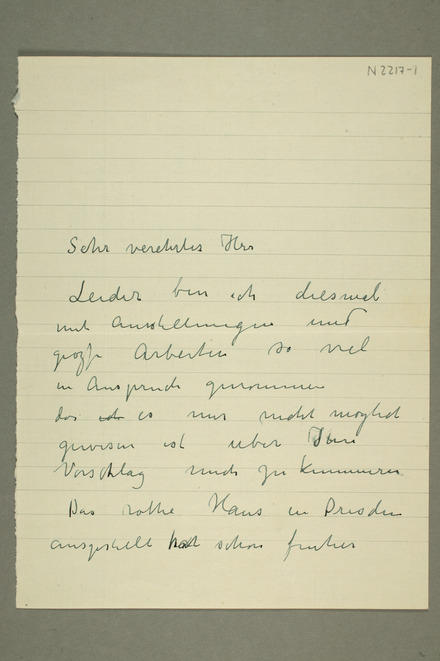 N2217-1
Sehr verehrtes Herr
Leider bin ich diesmal
mit Ausstellungen und
große Arbeiten so viel
in Anspruch genommen
das ich es mir nicht möglich
gewesen ist uber Ihre
Vorschlag mich zu kümmeren
Das rothe Haus in Dresden
ausgestellt hat schon früher